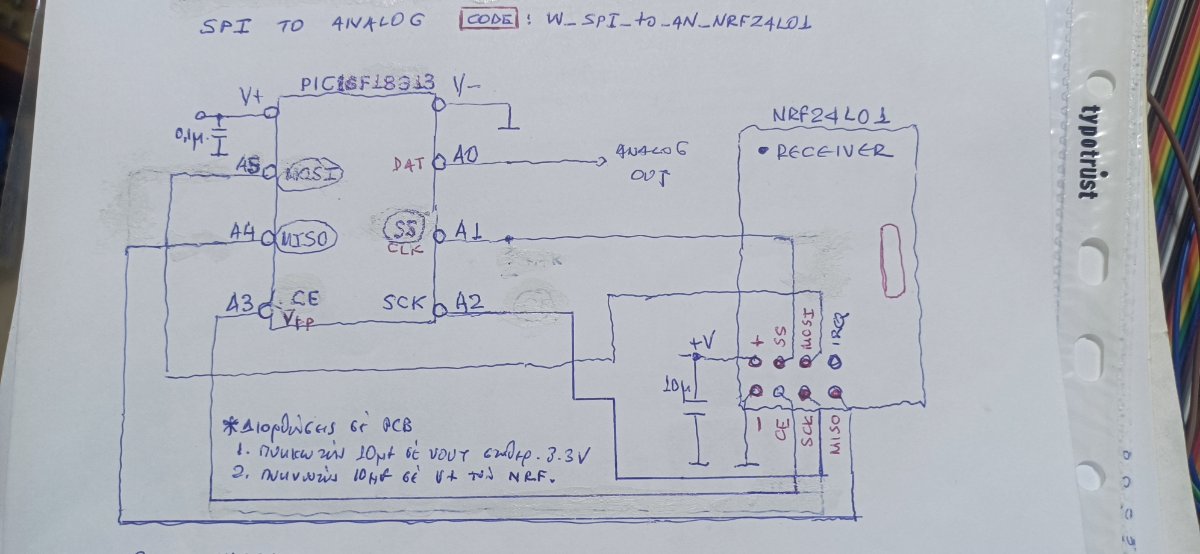 SPI TO ANALOG CODE: W_SPI_to_AN_NRF24L01
PIC16F18313
V+
V-
0,1μ.
A5 MOSI
DAT A0
ANALOG
OUT
A4 MISO
SS A1
CLK
A3 CE
Vpp
SCK A2
NRF24L01
• RECEIVER
+ SS MOSI IRQ
+V
10μ
- CE SCK MISO
*Διορθώσεις σε PCB
1. πυκνωτής 10μf σε VOUT σταθερ. 3.3V
2. πυκνωτής 10μf σε V+ του NRF.
typotrust